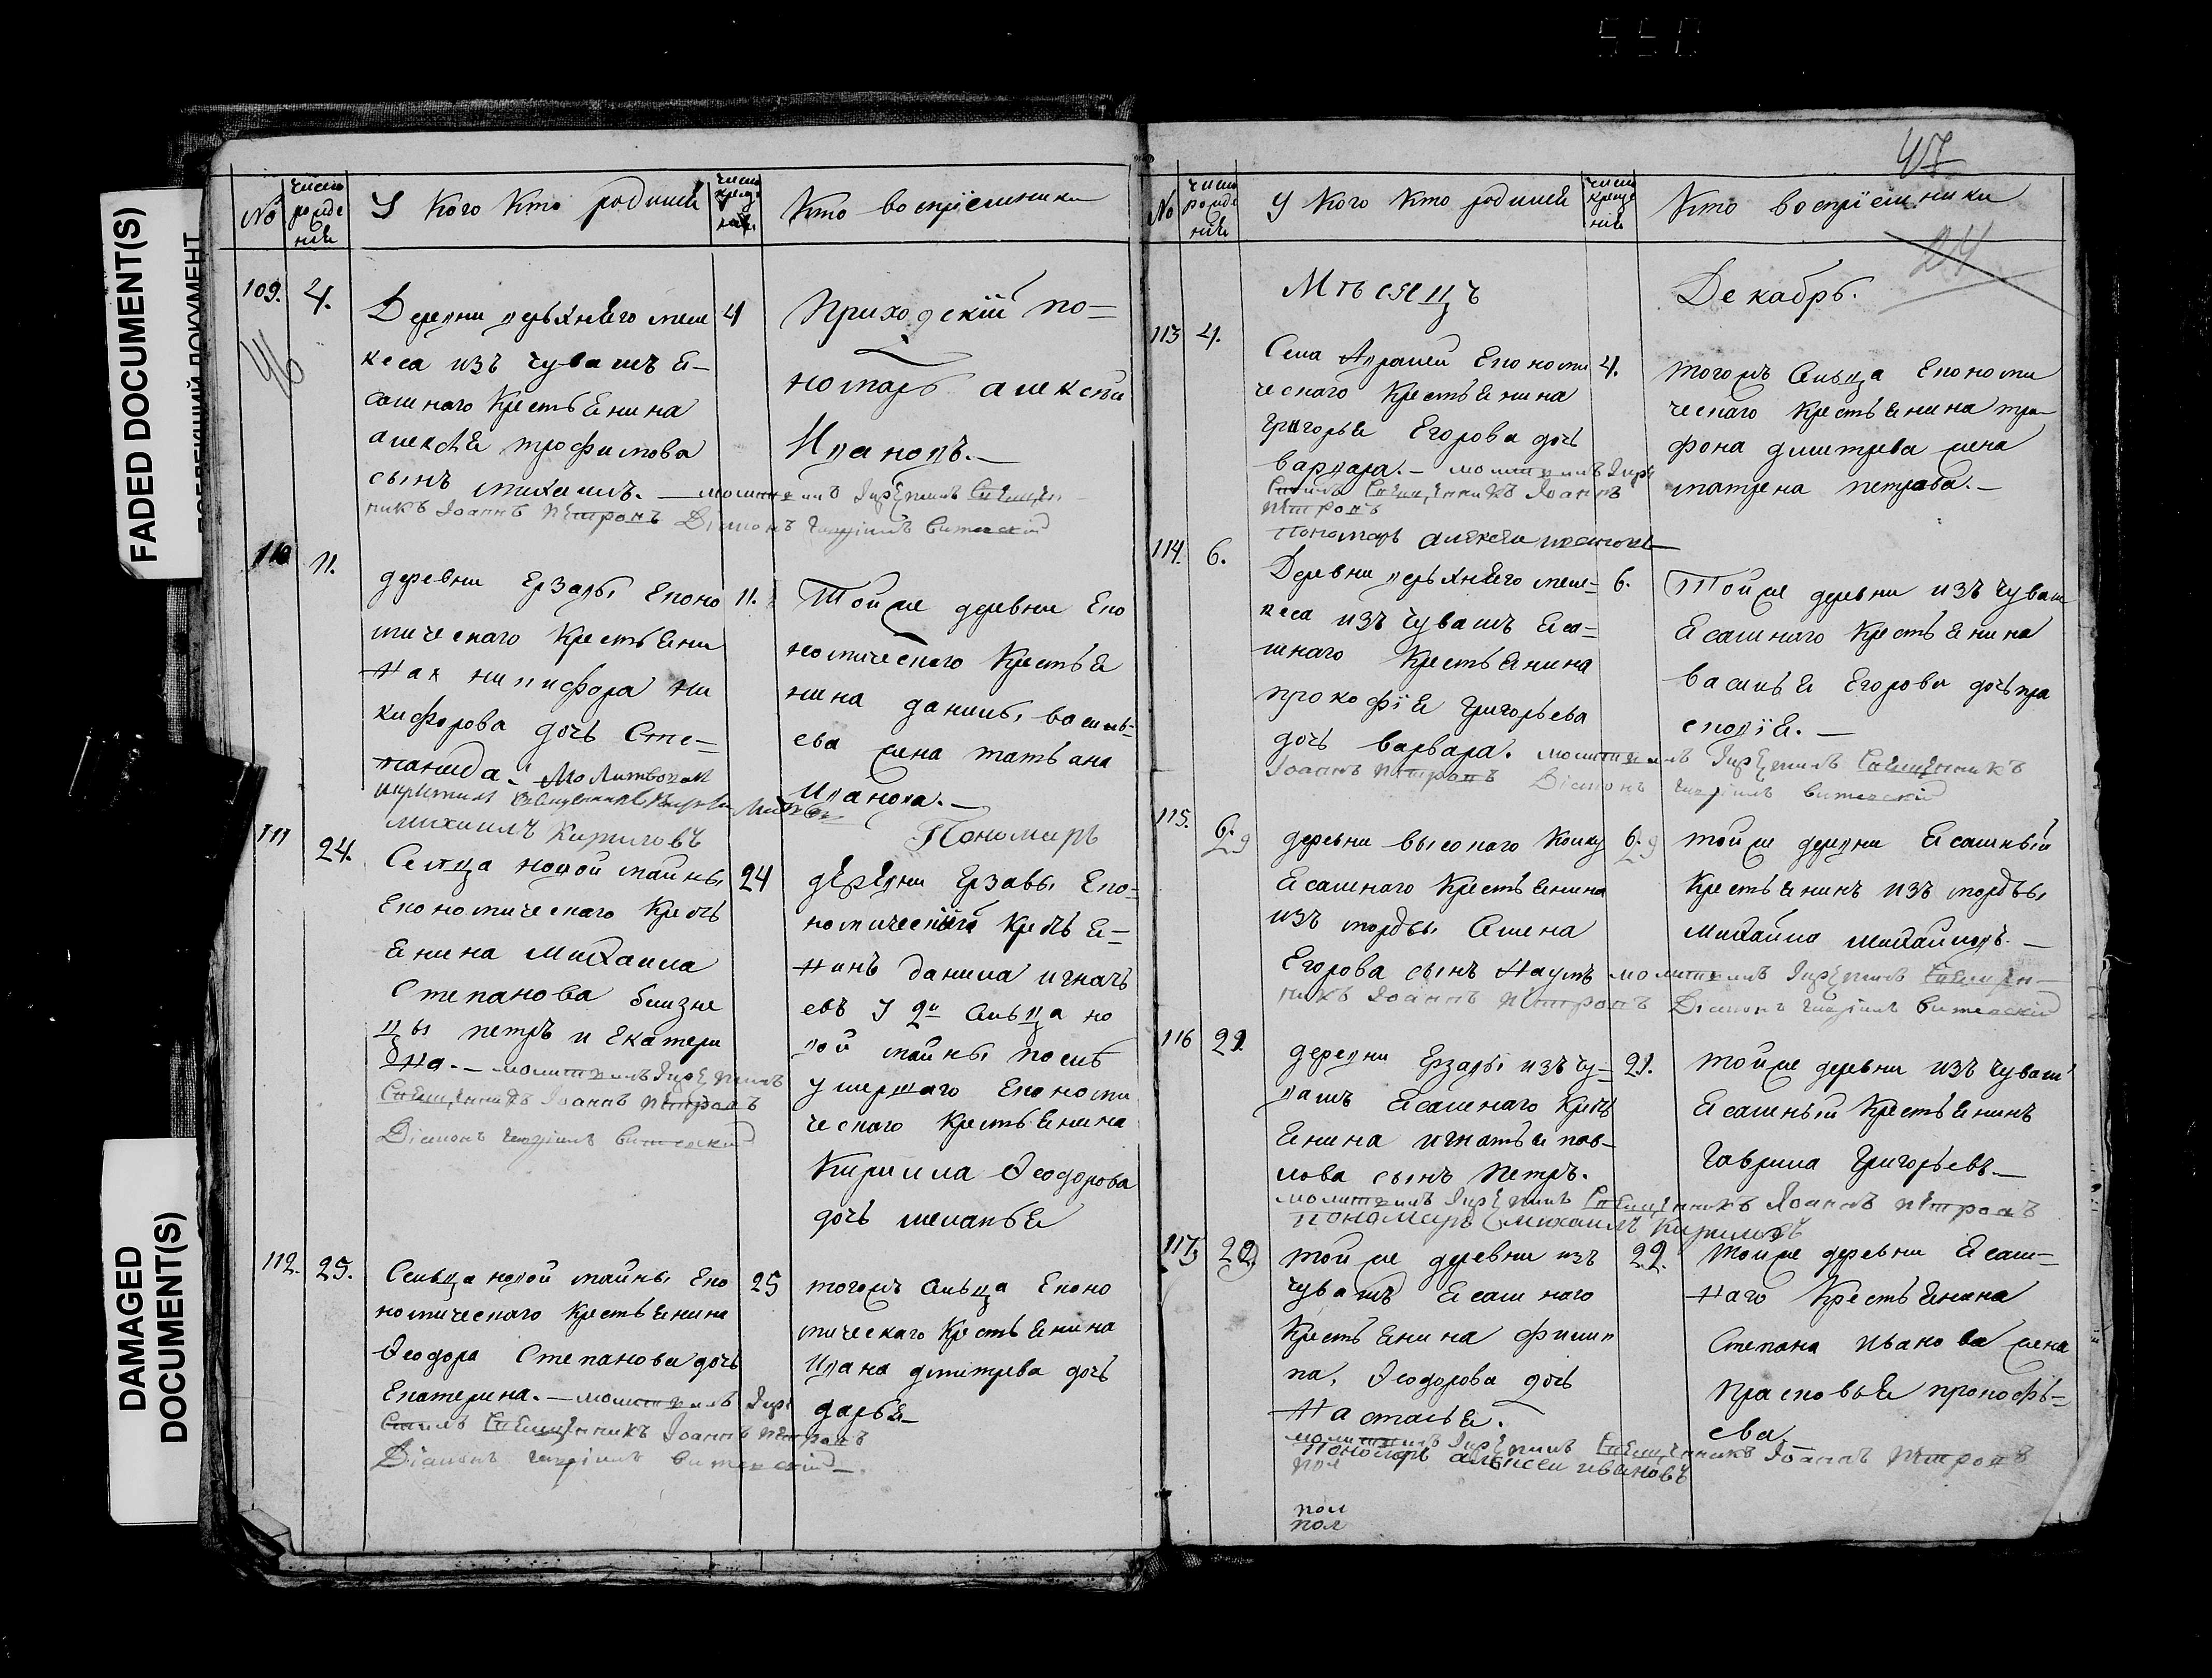 550
FADED DOCUMENT(S)
DAMAGED DOCUMENT(S)
№
число рожде нія
У кого кто родился
число креще нія
кто воспріемники
109.
4.
Деревни верьхняго меле
кеса изъ чувашъ Я-
сашнаго крестьянина
алексѣя трофимова
сынъ михаилъ. — молитвилъ
никъ Іоаннъ Петровъ Діаконъ
4
Приходскій по-
номарь алексѣй
Ивановъ. —
46
110
11.
деревни Ерзавы Еконо
мическаго крестьяни
на никифора ни
кифорова дочь Сте-
панида. Молитвовал
и крестил священникъ
михаилъ Кириловъ
11.
Той же деревни Еко
номическаго крестья
нина данилы василь-
ева жена татьяна
Иванова. —
Пономарь
111
24.
Сельца новой майны
Економическаго кресть
янина михаила
Степанова близне
цы петръ и Екатери
на. — молитвилъ
Священникъ Іоаннъ Петровъ
Діаконъ
24
деревни Ерзавы Еко-
номическій кресть я-
нинъ данила игнать
евъ у 2й сельца но
вой майны послѣ
умершаго Економи
ческаго крестьянина
Кирила Ѳеодорова
дочь меланья
112.
25.
Сельца новой майны Еко
номическаго крестьянина
Ѳеодора Степанова дочь
Екатерина. — молитвилъ
Священникъ Іоаннъ Петровъ
Діаконъ
25
тогожъ сельца Еконо
мическаго крестьянина
Ивана дмитрева дочь
дарья —
47
24
№
число рожде нія
У кого кто родился
число креще нія
Кто воспріемники
Мѣсяцъ
Декабрь.
113
4.
Села Економи
ческаго крестьянина
григорья Егорова дочь
варвара. — молитвилъ
Священникъ Іоаннъ
Петровъ
Пономарь алексѣй ивановъ
4.
тогожъ сельца Економи
ческаго крестьянина три
фона дмитрева жена
матрена петрова. —
114.
6.
Деревни верьхняго меле-
кеса изъ чувашъ Яса-
шнаго крестьянина
прокофія григорьева
дочь варвара. молитвилъ Священникъ
Іоаннъ Петровъ Діаконъ
6.
Той же деревни изъ чуваш
Ясашнаго крестьянина
василья Егорова дочь пра
сковія. —
115.
6.
29
деревни высокаго колку
Ясашнаго крестьянина
изъ мордвы Семена
Егорова сынъ Наумъ молитвилъ
никъ Іоаннъ Петровъ Діаконъ
6.
29
той же деревни Ясашный
крестьянинъ изъ мордвы
михайло михайловъ. —
116
21.
деревни Ерзавы изъ чу-
вашъ Ясашнаго кресть
янина игнатья пав-
лова сынъ петръ.
молитвилъ Священникъ Іоаннъ Петровъ
пономарь михаилъ кириловъ
21.
той же деревни изъ чуваш
Ясашный крестьянинъ
гаврила григорьевъ —
117
22
той же деревни изъ
чувашъ Ясашнаго
крестьянина филип
па Ѳеодорова дочь
Настасья.
молитвилъ Священникъ Іоаннъ Петровъ
Пономарь алексѣи ивановъ
пол
пол
пол
22.
той же деревни Ясаш-
наго крестьянина
Степана иванова жена
прасковья прокофь-
ева